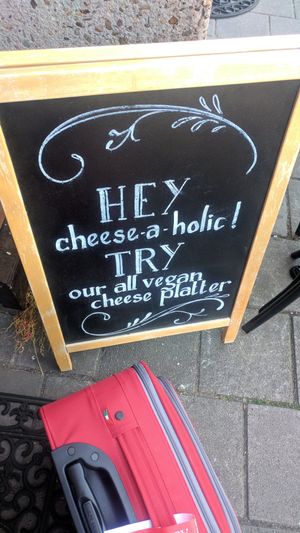 HEY
cheese-a-holic!
TRY
our all vegan
cheese platter